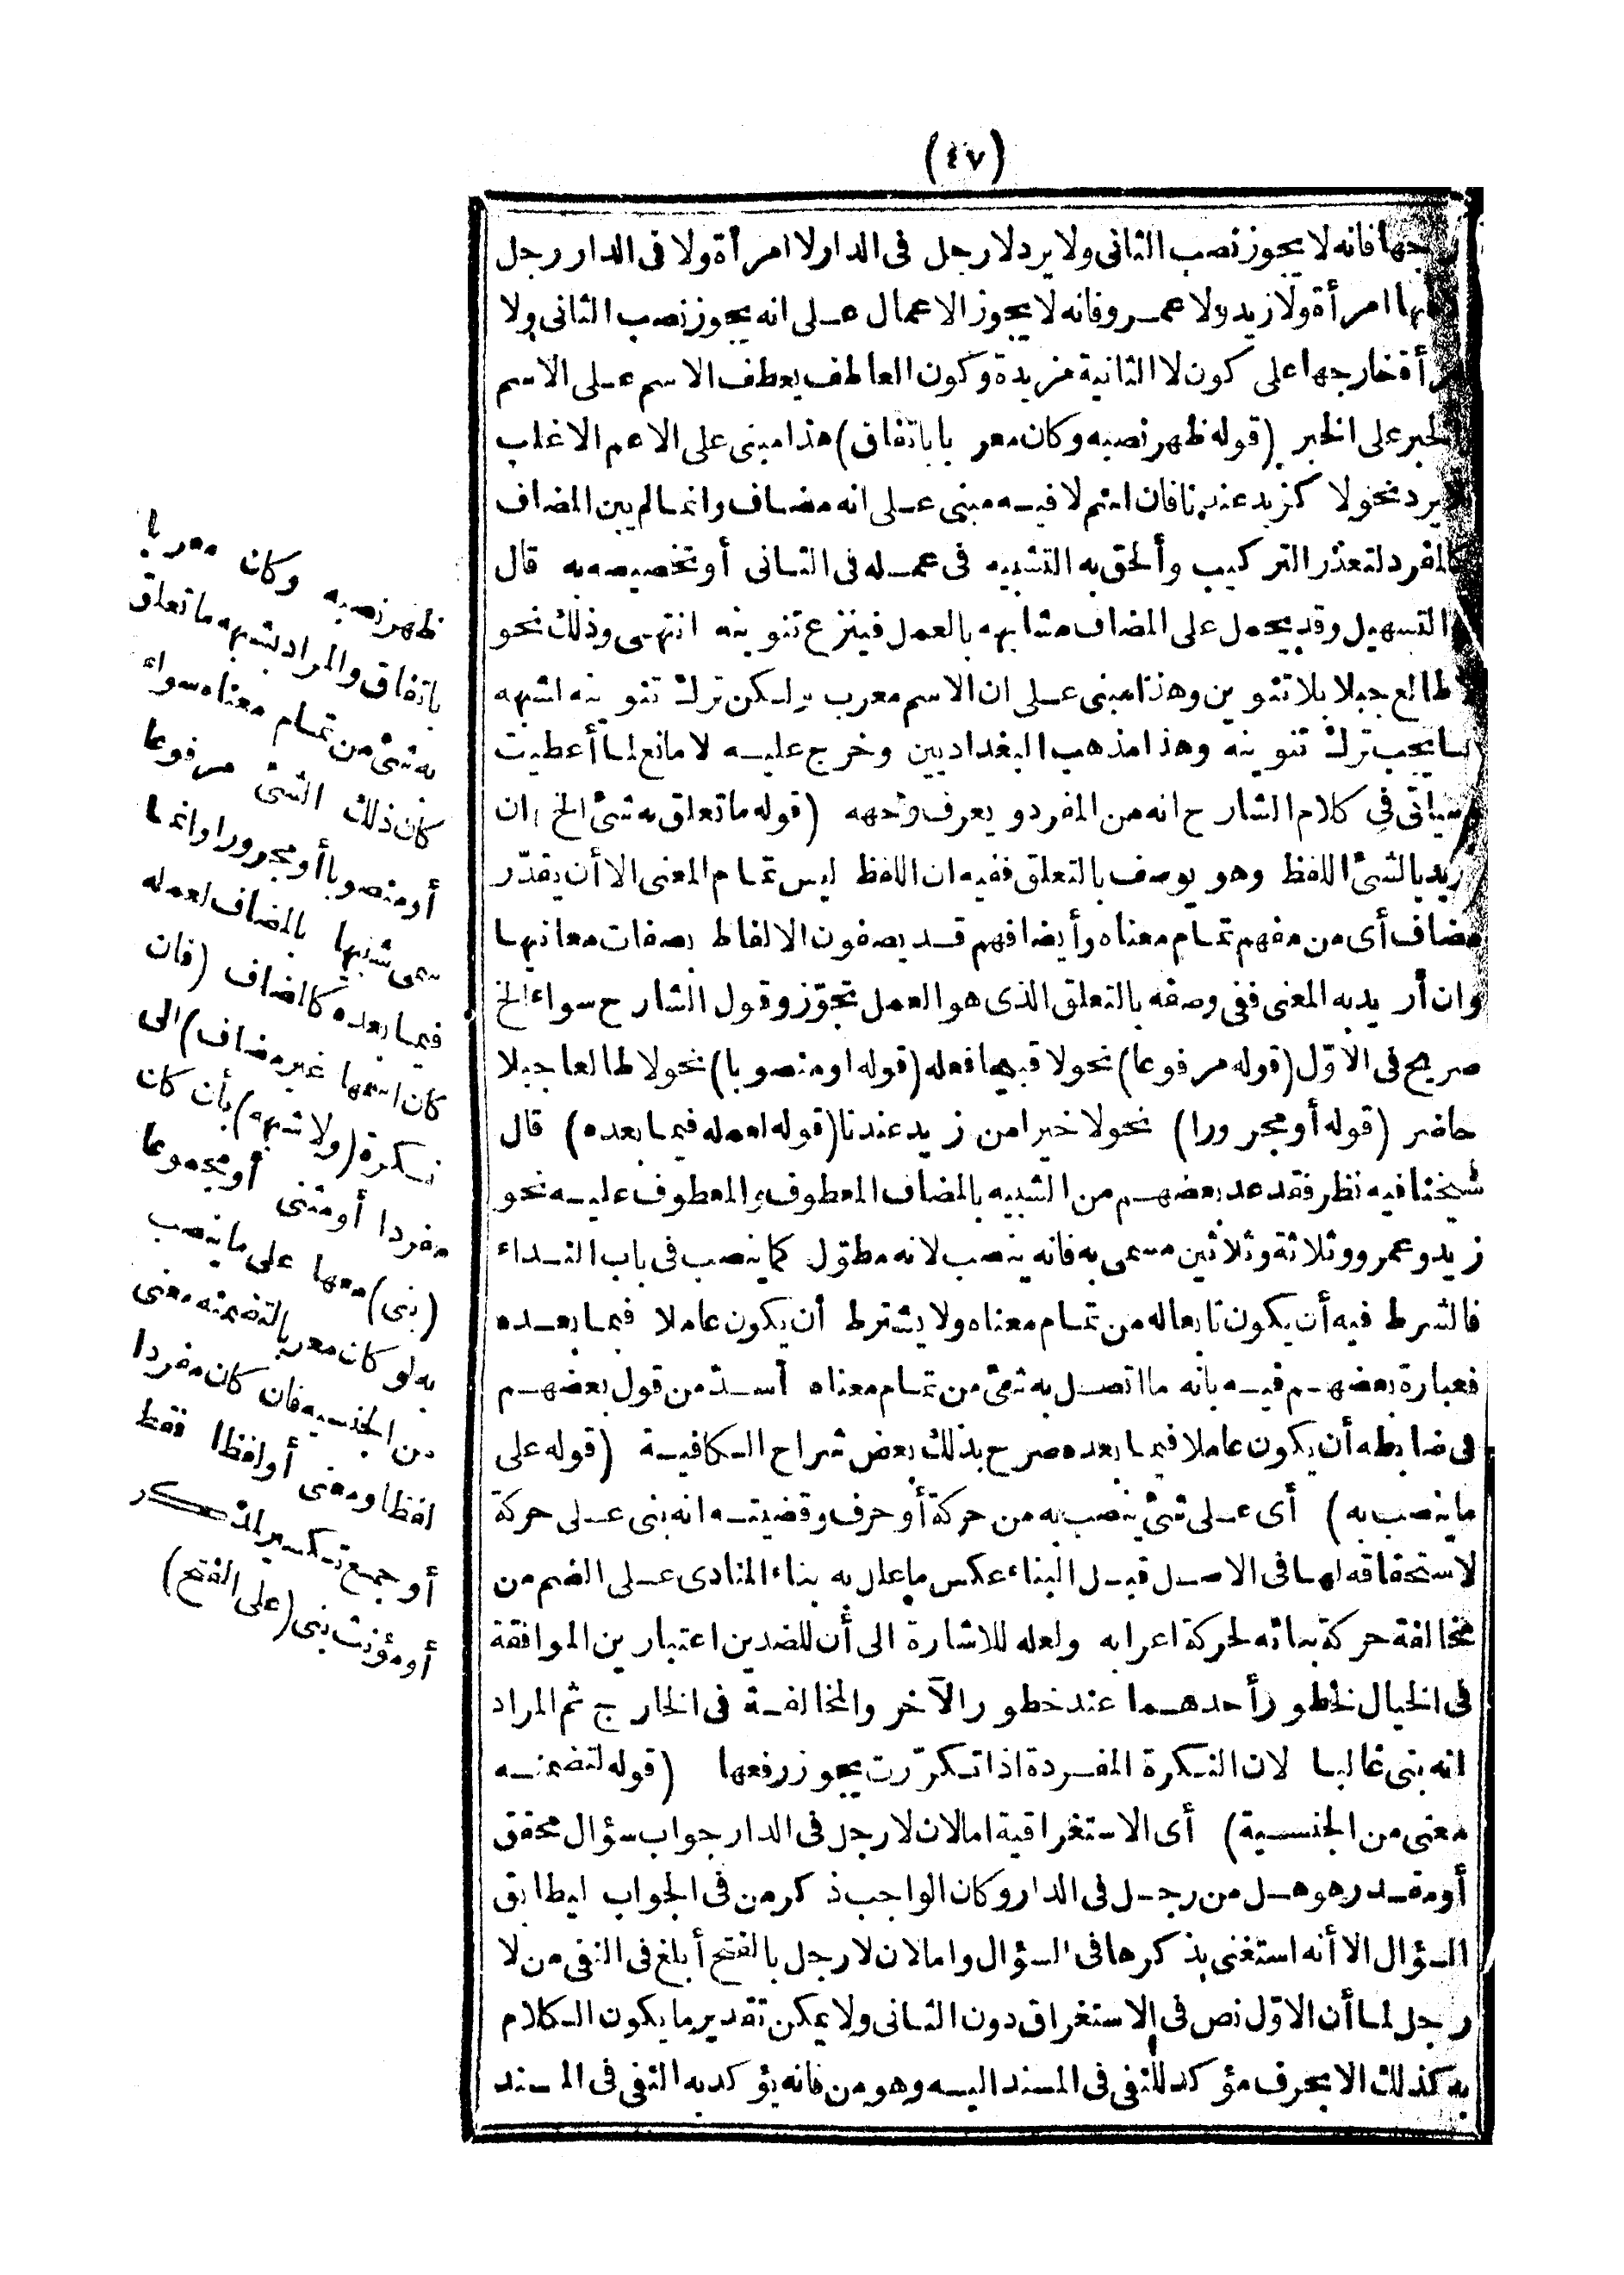 (٤٧)
فانه لا يجوز نصب الثانى ولا يرد لا رجل فى الدار ولا امرأة ولا فى الدار رجل
امرأة ولا زيد ولا عمرو فانه لا يجوز الاعمال على انه يجوز نصب الثانى ولا
فخارجها على كون لا الثانية مزيدة وكون العاطف يعطف الاسم على الاسم
على الخبر (قوله ظهر نصبه وكان معر با باتفاق) هذا مبنى على الاعم الاغلب
يرد نحو لا كزيد عندنا فان اسم لا فيه مبنى على انه مضاف وانما لم يبن المضاف
كالمفرد لتعذر التركيب وألحق به التشبيه فى عمله فى الثانى أو تخصيصه به قال
التسهيل وقد يحمل على المضاف مشابهه بالعمل فينزع تنوينه انتهى وذلك نحو
طالع جبلا بلا تنوين وهذا مبنى على ان الاسم معرب ولكن ترك تنوينه لشبهه
بما يجب ترك تنوينه وهذا مذهب البغداديين وخرج عليه لا مانع لما أعطيت
وسيأتى فى كلام الشارح انه من المفرد ويعرف وجهه (قوله ما تعلق به شئ الخ) ان
أريد بالشئ اللفظ وهو يوصف بالتعلق ففيه ان اللفظ ليس تمام المعنى الا أن يقدّر
مضاف أى من مفهم تمام معناه وأيضا فهم قد يصفون الالفاظ بصفات معانيها
وان أريد به المعنى ففى وصفه بالتعلق الذى هو العمل تجوّز وقول الشارح سواء الخ
صريح فى الاوّل (قوله مرفوعا) نحو لا قبيحا فعله (قوله او منصوبا) نحو لا طالعا جبلا
حاضر (قوله أو مجرورا) نحو لا خيرا من زيد عندنا (قوله لعمله فيما بعده) قال
شيخنا فيه نظر فقد عد بعضهم من الشبيه بالمضاف المعطوف والمعطوف عليه نحو
زيد وعمرو وثلاثة وثلاثين مسمى به فانه ينصب لانه مطوّل كما ينصب فى باب النداء
فالشرط فيه أن يكون تابعا له من تمام معناه ولا يشترط أن يكون عاملا فيما بعده
فعبارة بعضهم فيه بانه ما اتصل به شئ من تمام معناه أسدّ من قول بعضهم
فى ضابطه أن يكون عاملا فيما بعده صرح بذلك بعض شراح الكافية (قوله على
ما ينصب به) أى على شئ ينصب به من حركة أو حرف وقضيته انه بنى على حركة
لاستحقاقه لها فى الاصل قبل البناء عكس ما علل به بناء المنادى على الضم من
مخالفة حركة بنائه لحركة اعرابه ولعله للاشارة الى أن للضدين اعتبارين الموافقة
فى الخيال لخطور أحدهما عند خطور الآخر والمخالفة فى الخارج ثم المراد
انه بنى غالبا لان النكرة المفردة اذا تكرّرت يجوز رفعها (قوله لتضمنه
معنى من الجنسية) أى الاستغراقية اما لان لا رجل فى الدار جواب سؤال محقق
أو مقدر هو هل من رجل فى الدار وكان الواجب ذكر من فى الجواب ليطابق
السؤال الا أنه استغنى بذكرها فى السؤال واما لان لا رجل بالفتح أبلغ فى النفى من لا
رجل لما أن الاوّل نص فى الاستغراق دون الثانى ولا يمكن تقدير ما يكون الكلام
به كذلك الا بحرف مؤكد للنفى فى المسند اليه وهو من فانه يؤكد به النفى فى المسند
ظهر نصبه وكان معر با
باتفاق والمراد بشبهه ما تعلق
به شئ من تمام معناه سواء
كان ذلك الشئ مرفوعا
أو منصوبا أو مجرورا وانما
سمى شبيها بالمضاف لعمله
فيما بعده كالمضاف (فان
كان اسمها غير مضاف) الى
نكرة (ولا شبهه) بأن كان
مفردا أو مثنى أو مجموعا
(بنى) معها على ما ينصب
به لو كان معربا لتضمنه معنى
من الجنسية فان كان مفردا
لفظا ومعنى أو لفظا فقط
أو جمع تكسير لمذكر
أو مؤنث بنى (على الفتح)